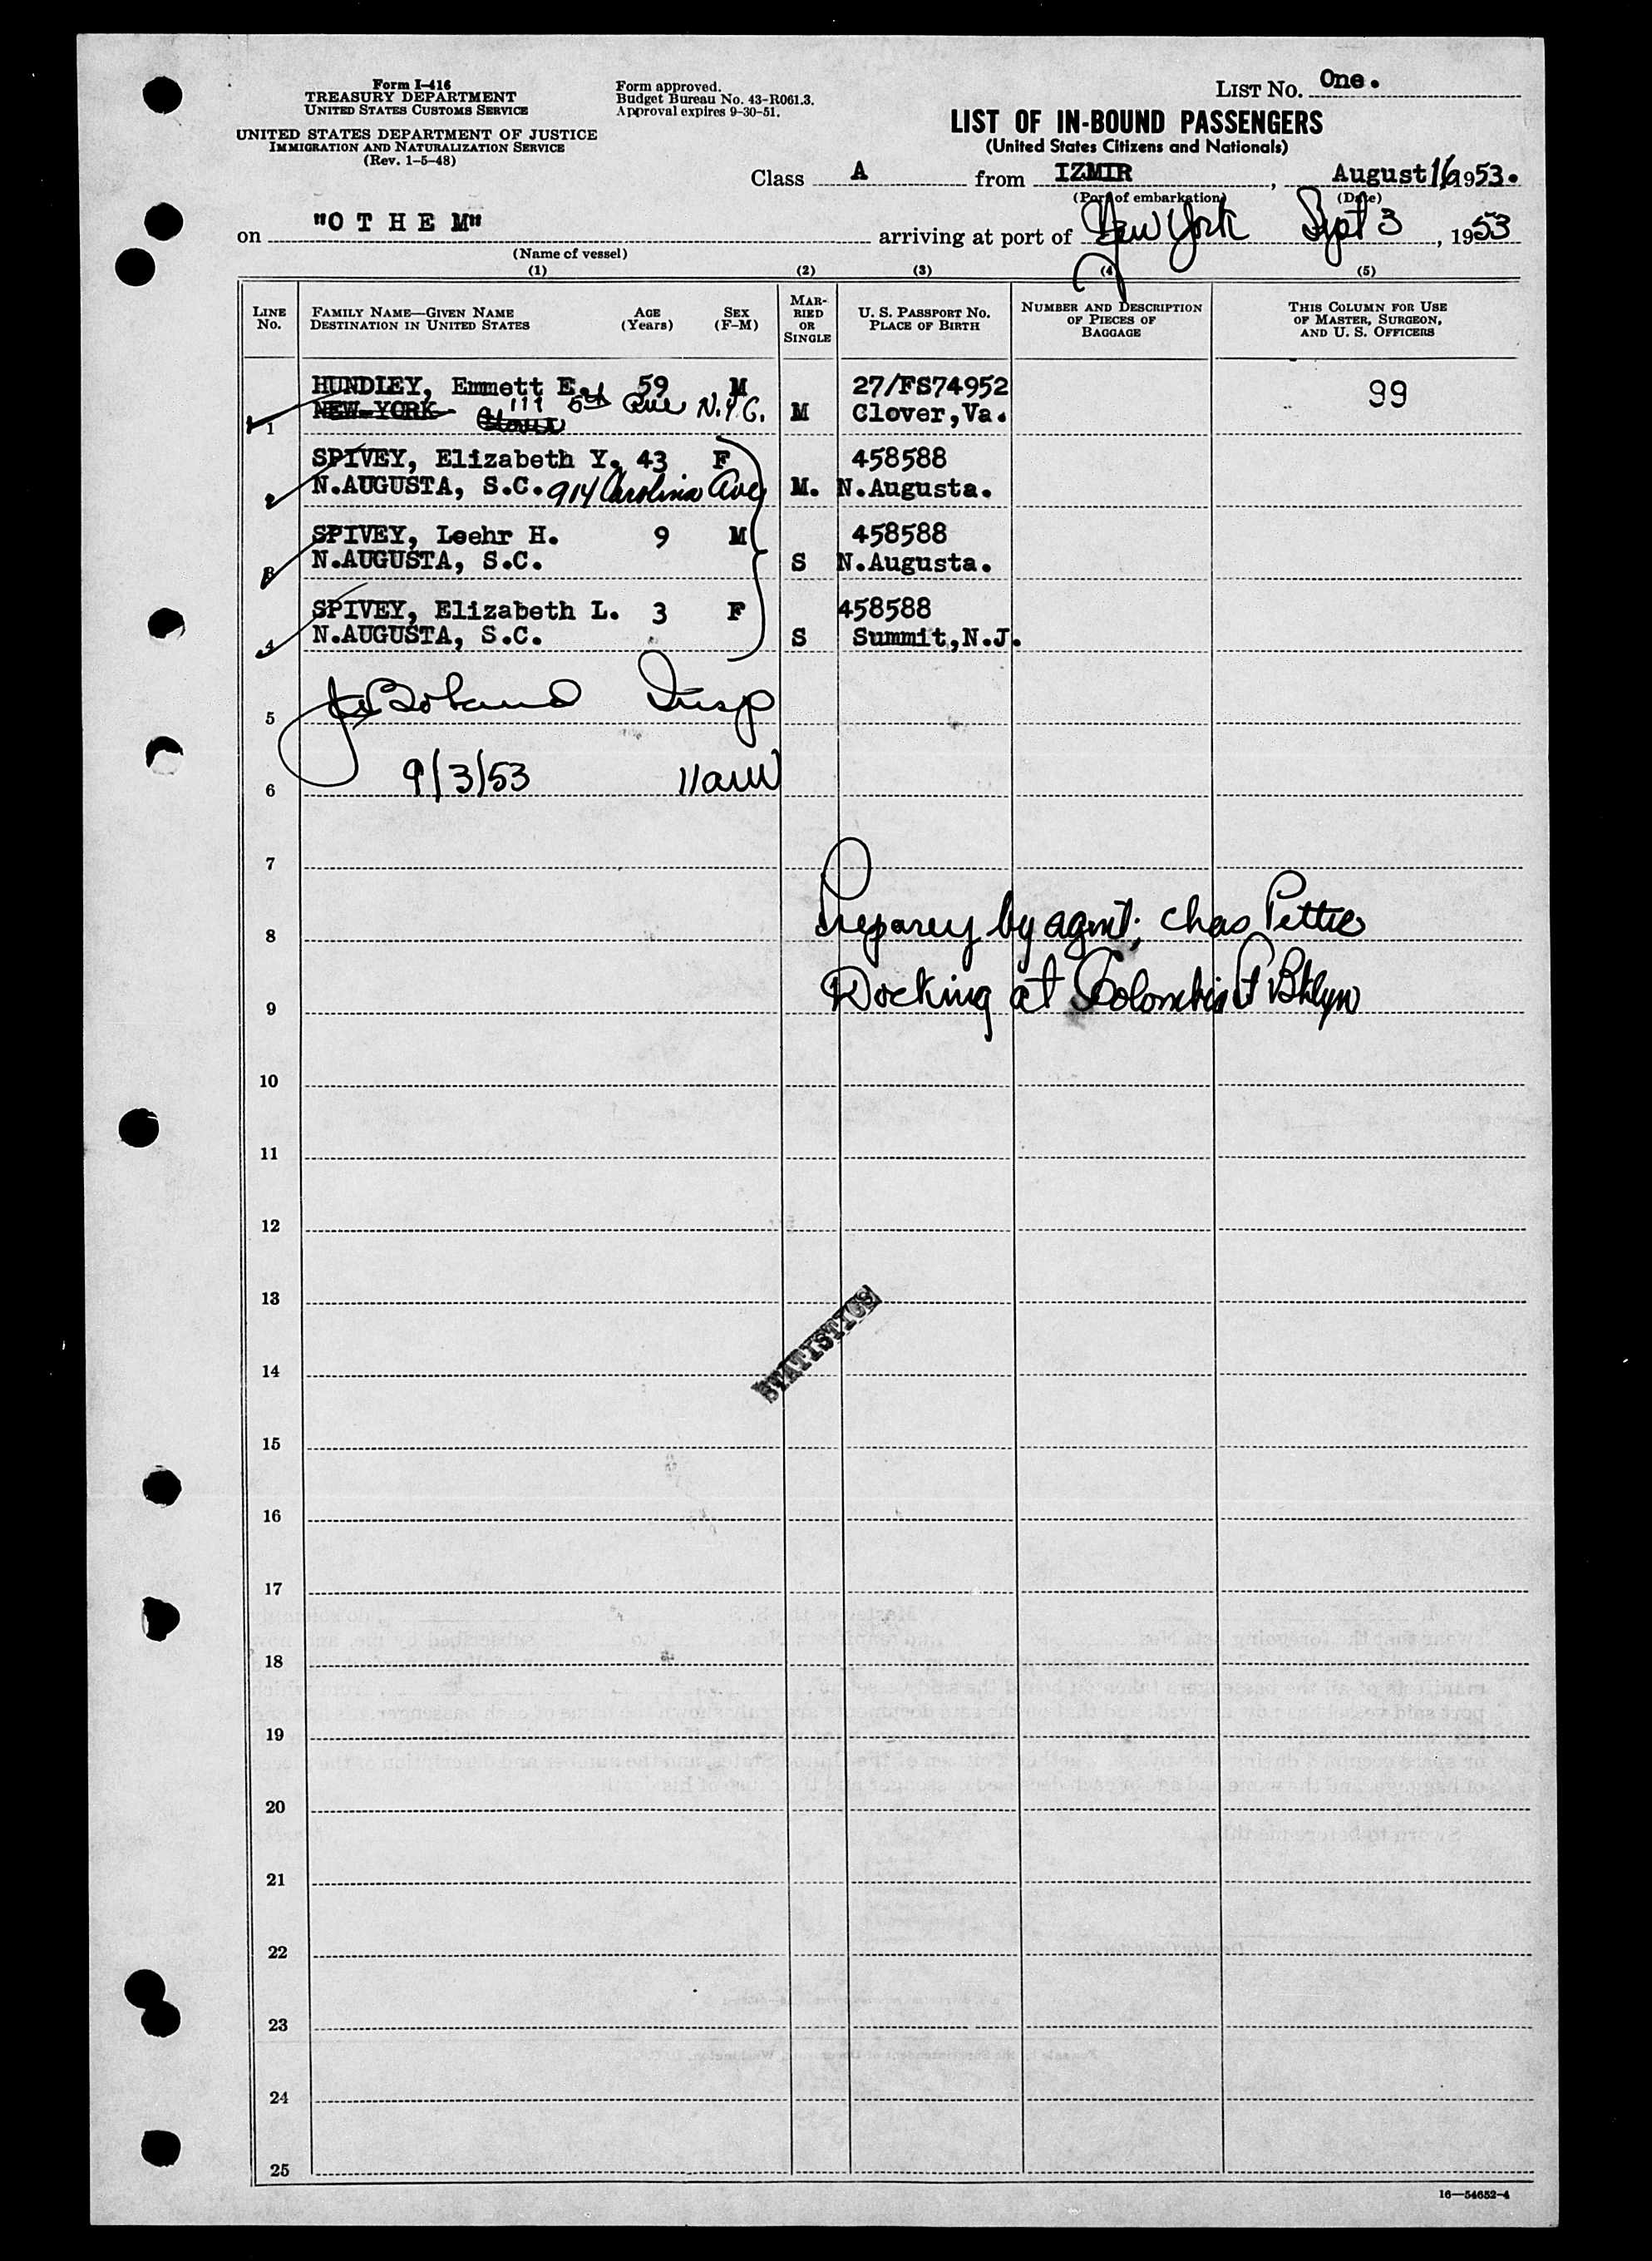 Form I-416
TREASURY DEPARTMENT
UNITED STATES CUSTOMS SERVICE
UNITED STATES DEPARTMENT OF JUSTICE
IMMIGRATION AND NATURALIZATION SERVICE
(Rev. 1-5-48)
Form approved.
Budget Bureau No. 43-R061.3.
Approval expires 9-30-51.
LIST NO. One.
LIST OF IN-BOUND PASSENGERS
(United States Citizens and Nationals)
Class A from IZMIR, August 16 1953.
(Port of embarkation) (Date)
on "O T H E M" arriving at port of New York Sept 3, 1953
(Name of vessel)
(1) (2) (3) (4) (5)
LINE NO.
FAMILY NAME—GIVEN NAME
DESTINATION IN UNITED STATES
AGE (Years)
SEX (F-M)
MARRIED OR SINGLE
U. S. PASSPORT NO.
PLACE OF BIRTH
NUMBER AND DESCRIPTION OF PIECES OF BAGGAGE
THIS COLUMN FOR USE OF MASTER, SURGEON, AND U. S. OFFICERS
HUNDLEY, Emmett E. 59 M 27/FS74952 99
1 NEW YORK 111 5th Ave N.Y.C. M Clover, Va.
SPIVEY, Elizabeth Y. 43 F 458588
2 N.AUGUSTA, S.C. 914 Carolina Ave M. N.Augusta.
SPIVEY, Leehr H. 9 M 458588
3 N.AUGUSTA, S.C. S N.Augusta.
SPIVEY, Elizabeth L. 3 F 458588
4 N.AUGUSTA, S.C. S Summit, N.J.
Boland Insp
5
9/3/53 11am
6
7
by agent: Chas Pettie
8
Docking at Columbia St Bklyn
9
10
11
12
13
STATISTICS
14
15
16
17
18
19
20
21
22
23
24
25
16—54652-4